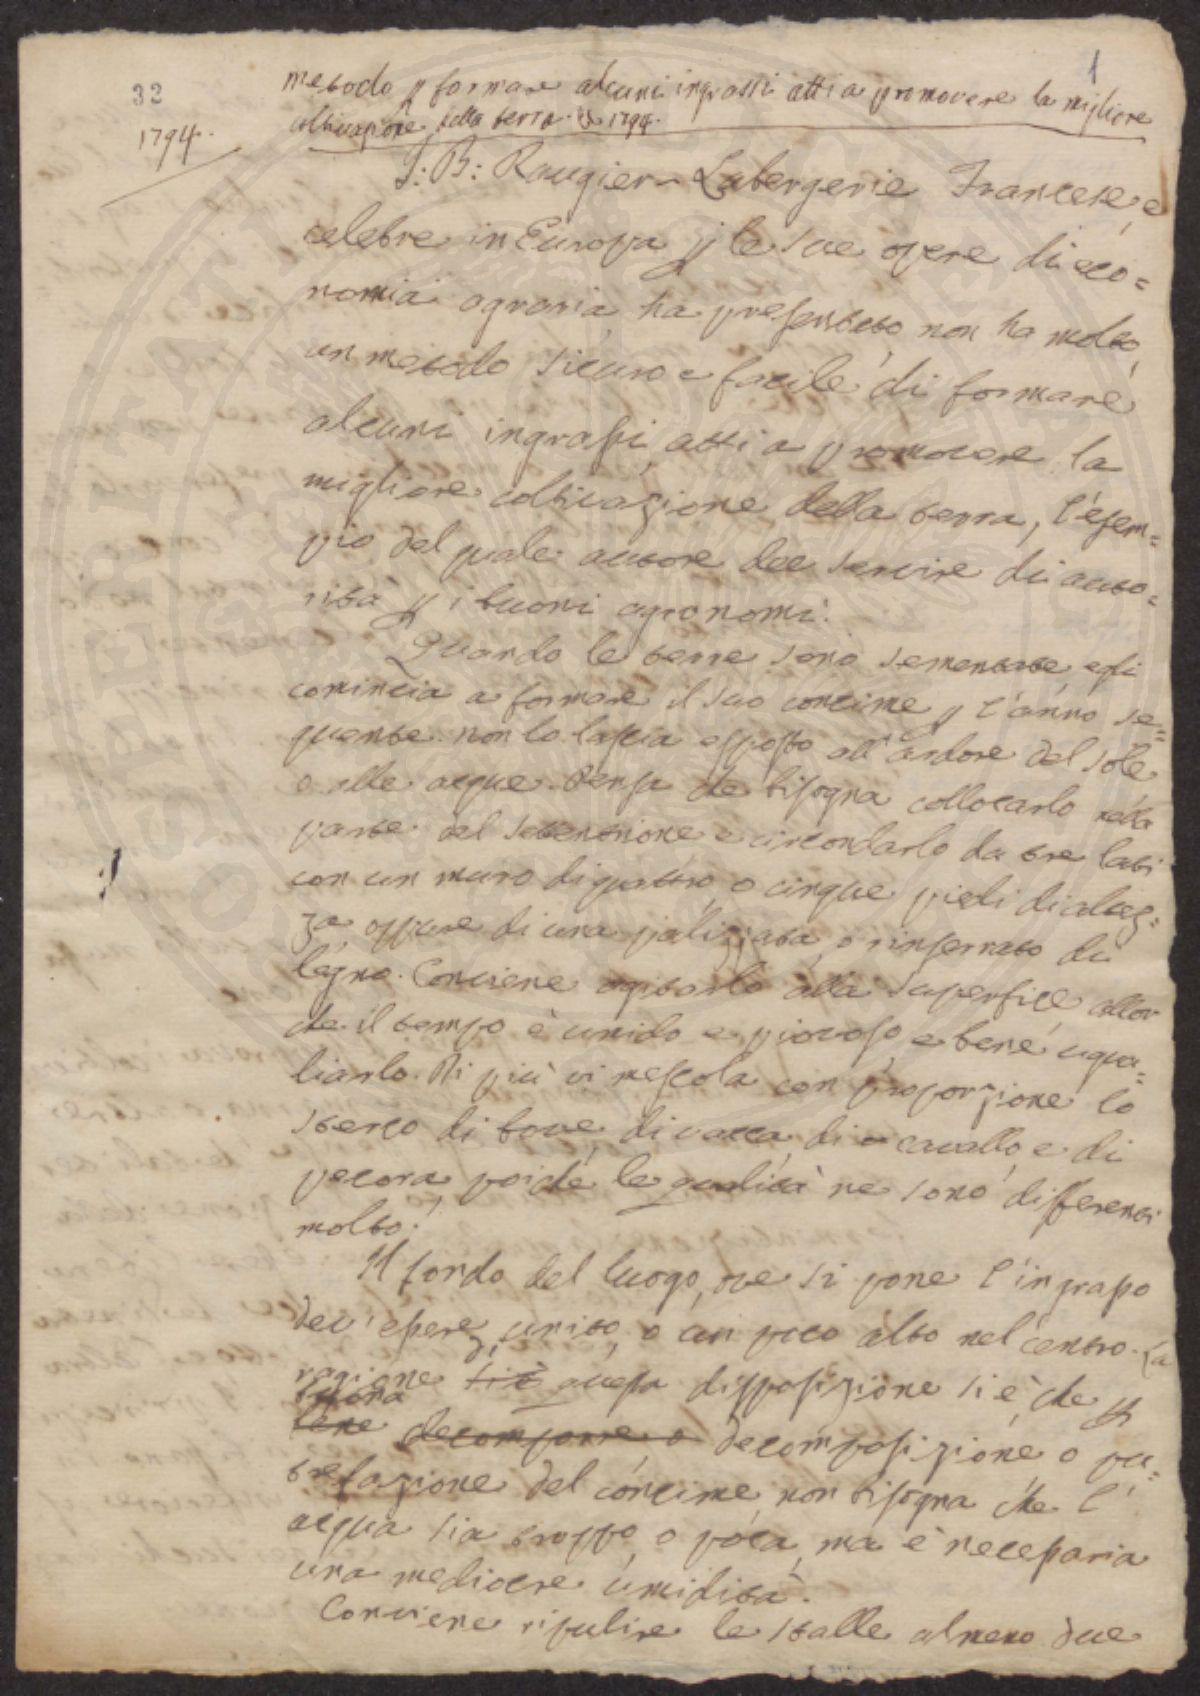 1
32
1794.
metodo p formare alcuni ingrassi atti a promovere la migliore
coltivazione della terra. 1794.
J: B: Rougier Labergerie Francese, e
celebre in Europa p le sue opere di eco=
nomia agraria, ha presentato non ha molto,
un metodo sicuro e facile di formare
alcuni ingrassi atti a promovere la
migliore coltivazione della terra, l'esem=
pio del quale autore dee servire di auto=
rità p i buoni agronomi.
Quando le terre sono sementate egli
comincia a formare il suo concime p l'anno se=
guente. non lo lascia esposto all'ardore del sole
e alle acque. Pensa che bisogna collocarlo nella
parte del settentrione e circondarlo da tre lati
con un muro di quattro, o cinque piedi di altez=
za oppure di una palizzata, o rinserrato di
legno. Conviene agitarlo alla superficie allor
che il tempo è umido e piovoso, e bene ugua=
liarlo. Di più vi mescola con proporzione lo
sterco di bove, di vacca, di cavallo, e di
pecora, poiché le qualità ne sono differenti
molto.
Il fondo del luogo, ove si pone l'ingrasso
dev'essere unito, o un poco alto nel centro. La
ragione di questa disposizione si è, che p
bene decomporre o decomposizione o pu=
trefazione del concime non bisogna che l'
acqua sia troppo, o poca, ma è necessaria
una mediocre umidità.
Conviene ripulire le stalle almeno due